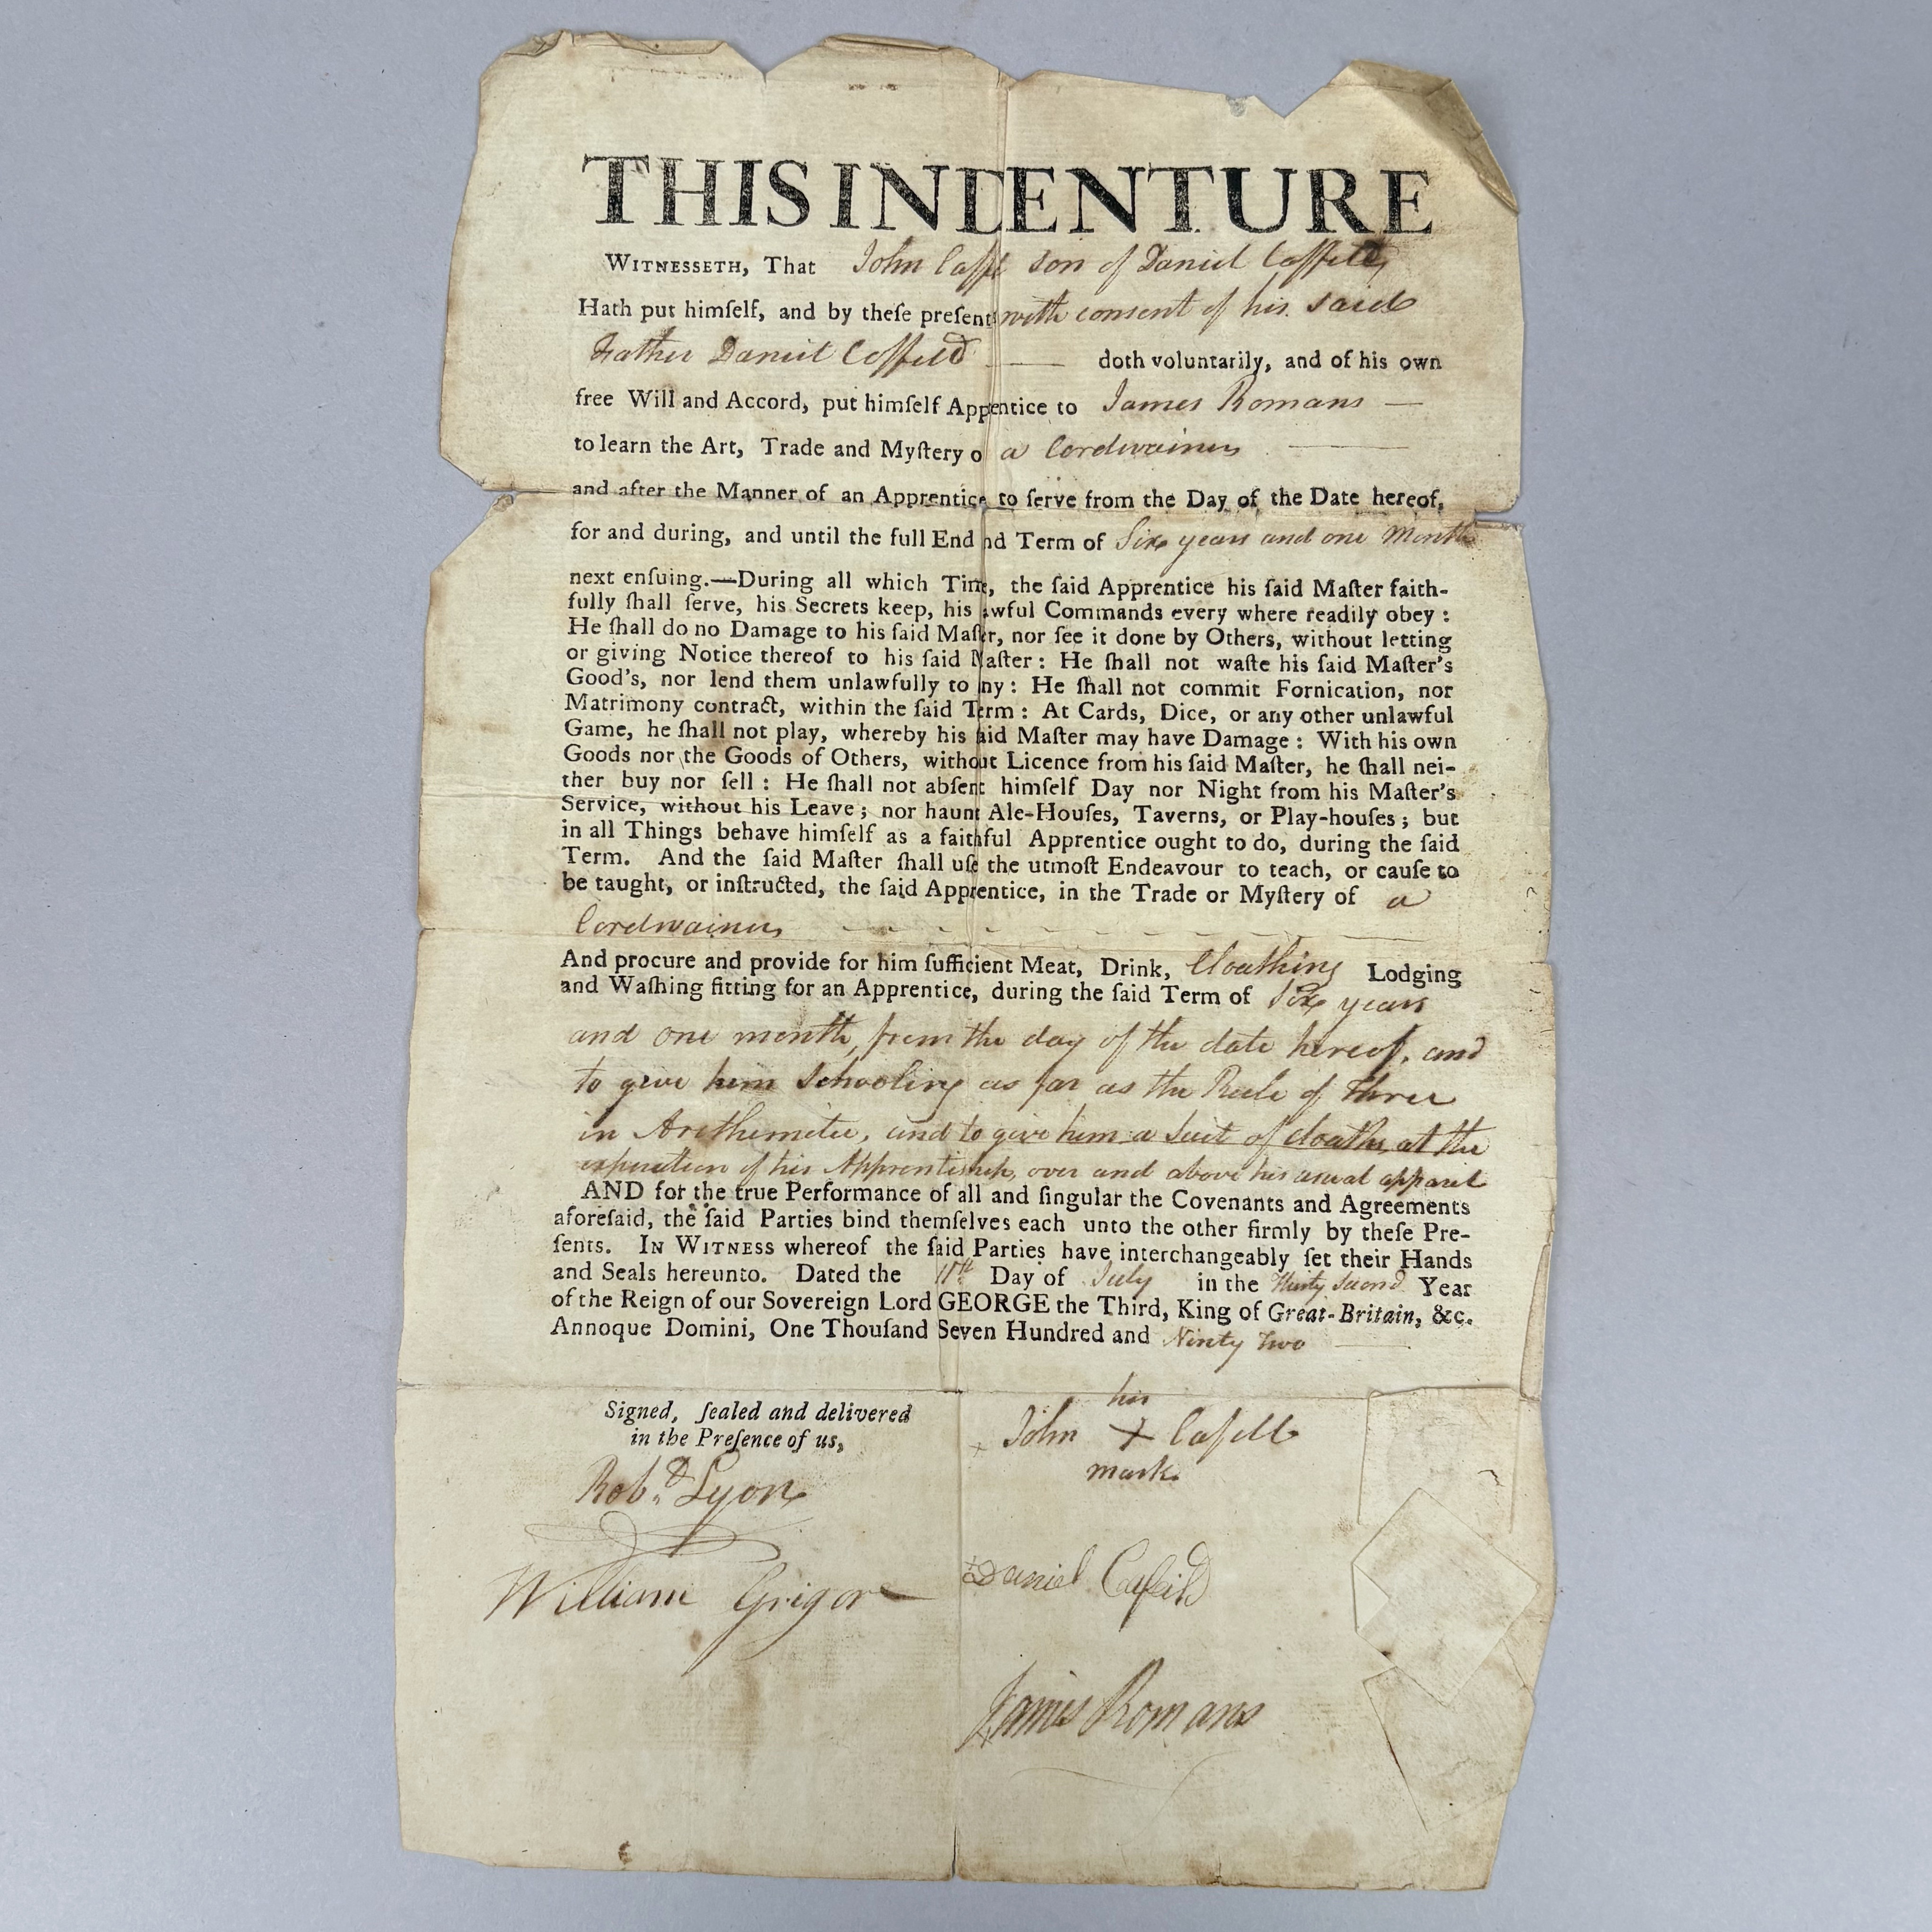 THIS INDENTURE
WITNESSETH, That John Caffe son of Daniel Caffeld
Hath put himſelf, and by theſe preſents with consent of his said
Father Daniel Coffeld doth voluntarily, and of his own
free Will and Accord, put himſelf Apprentice to James Romans
to learn the Art, Trade and Myſtery o a Cordwainer
and after the Manner of an Apprentice to ſerve from the Day of the Date hereof,
for and during, and until the full End nd Term of Six years and one Month
next enſuing.—During all which Time, the ſaid Apprentice his ſaid Maſter faith-
fully ſhall ſerve, his Secrets keep, his awful Commands every where readily obey :
He ſhall do no Damage to his ſaid Maſter, nor ſee it done by Others, without letting
or giving Notice thereof to his ſaid Maſter : He ſhall not waſte his ſaid Maſter's
Good's, nor lend them unlawfully to any : He ſhall not commit Fornication, nor
Matrimony contract, within the ſaid Term : At Cards, Dice, or any other unlawful
Game, he ſhall not play, whereby his ſaid Maſter may have Damage : With his own
Goods nor the Goods of Others, without Licence from his ſaid Maſter, he ſhall nei-
ther buy nor ſell : He ſhall not abſent himſelf Day nor Night from his Maſter's
Service, without his Leave ; nor haunt Ale-Houſes, Taverns, or Play-houſes ; but
in all Things behave himſelf as a faithful Apprentice ought to do, during the ſaid
Term. And the ſaid Maſter ſhall uſe the utmoſt Endeavour to teach, or cauſe to
be taught, or inſtructed, the ſaid Apprentice, in the Trade or Myſtery of a
Cordwainer
And procure and provide for him ſufficient Meat, Drink, Cloathing Lodging
and Waſhing fitting for an Apprentice, during the ſaid Term of Six years
and one month, from the day of the date hereof, and
to give him Schooling as far as the Rule of Three
in Arethemetic, and to give him a Suit of cloaths, at the
expiration of his Apprentiship, over and above his usual apparel
AND for the true Performance of all and ſingular the Covenants and Agreements
aforeſaid, the ſaid Parties bind themſelves each unto the other firmly by theſe Pre-
ſents. IN WITNESS whereof the ſaid Parties have interchangeably ſet their Hands
and Seals hereunto. Dated the 11th Day of July in the Thirty Second Year
of the Reign of our Sovereign Lord GEORGE the Third, King of Great-Britain, &c.
Annoque Domini, One Thouſand Seven Hundred and Ninty Two
Signed, ſealed and delivered
in the Preſence of us,
his
John X Cafell
mark
Robd. Lyon
William Grigor
Daniel Cafeild
James Romans